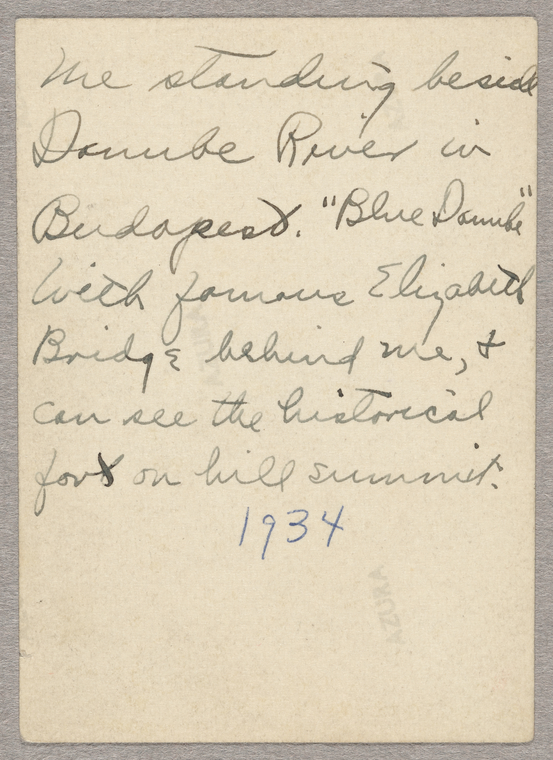 me standing beside
Danube River in
Budapest. "Blue Danube"
With famous Elizabeth
Bridge behind me, &
can see the historical
fort on hill summit.
1934
AKUSA